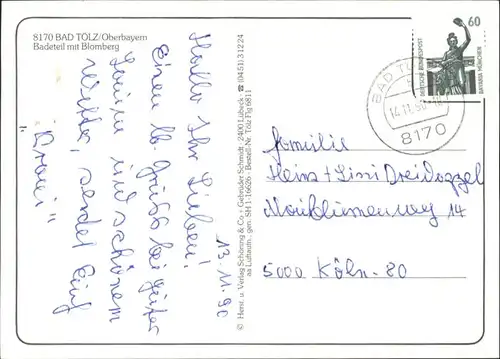 8170 BAD TÖLZ/Oberbayern
Badeteil mit Blomberg
13.11.90
Hallo Ihr Lieben!
Einen lb. Gruß bei guter
Laune und schönem
Wetter, sendet Euch
© Herst. u. Verlag Schöning & Co + Gebrüder Schmidt · 2400 Lübeck · ☎ (0451) 31224
aa Luftaufn. gen. SH 1-16626 · Bestell-Nr. Tölz Flg 6811
60
DEUTSCHE BUNDESPOST
BAVARIA MÜNCHEN
BAD TÖ
14.11.90
8170
Familie
Heinz + Sini
Maiblumenweg 14
5000 Köln-80